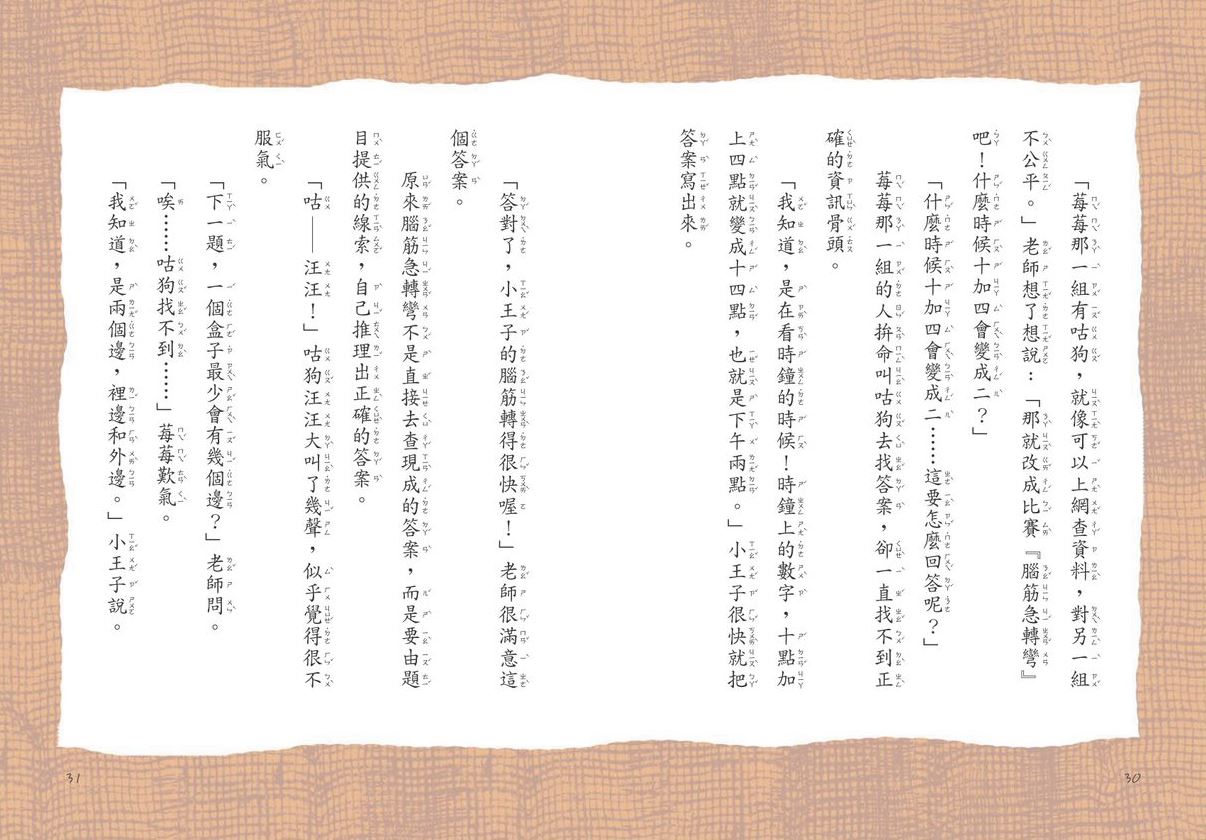 「莓莓那一組有咕狗，就像可以上網查資料，對另一組
不公平。」老師想了想說：「那就改成比賽『腦筋急轉彎』
吧！什麼時候十加四會變成二？」
「什麼時候十加四會變成二……這要怎麼回答呢？」
莓莓那一組的人拚命叫咕狗去找答案，卻一直找不到正
確的資訊骨頭。
「我知道，是在看時鐘的時候！時鐘上的數字，十點加
上四點就變成十四點，也就是下午兩點。」小王子很快就把
答案寫出來。
30
「答對了，小王子的腦筋轉得很快喔！」老師很滿意這
個答案。
原來腦筋急轉彎不是直接去查現成的答案，而是要由題
目提供的線索，自己推理出正確的答案。
「咕——汪汪！」咕狗汪汪大叫了幾聲，似乎覺得很不
服氣。
「下一題，一個盒子最少會有幾個邊？」老師問。
「唉……咕狗找不到……」莓莓歎氣。
「我知道，是兩個邊，裡邊和外邊。」小王子說。
31